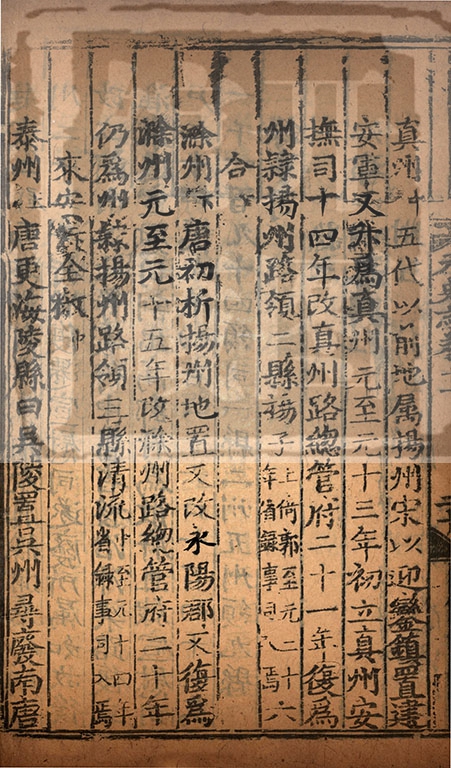 真州中五代以前地属揚州宋以迎鑾鎮置建
安軍又升爲真州元至元十三年初立真州安
撫司十四年改真州路總管府二十一年復爲
州隷揚州路領二縣揚子上倚郭至元二十六年省録事司入焉
合下
滁州下唐初析揚州地置又改永陽郡又復爲
滁州元至元十五年改滁州路總管府二十年
仍爲州隷揚州路領三縣清流中至元十四年省録事司入焉
來安全椒中
泰州上唐更海陵縣曰吳陵置吳州尋廢南唐